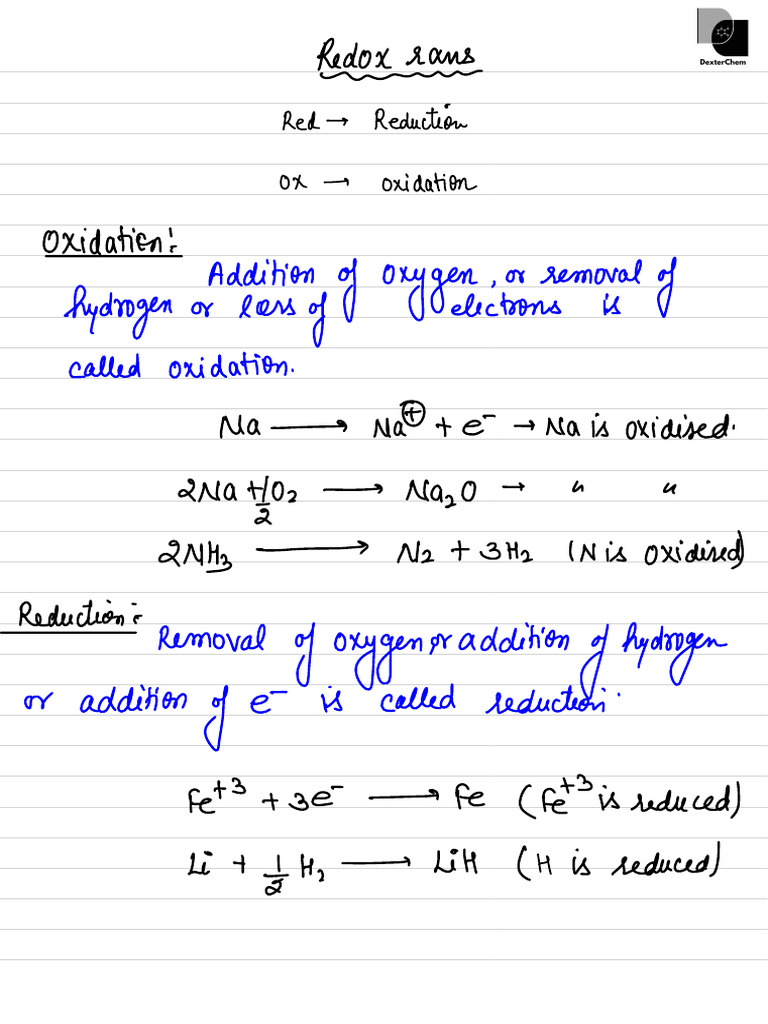 DexterChem
Redox rxns
Red → Reduction
Ox → oxidation
Oxidation:
Addition of oxygen, or removal of
hydrogen or loss of electrons is
called oxidation.
Na ⟶ Na⊕ + e⁻ → Na is oxidised.
2Na + 1/2 O₂ ⟶ Na₂O → " "
2NH₃ ⟶ N₂ + 3H₂ (N is oxidised)
Reduction:-
Removal of oxygen or addition of hydrogen
or addition of e⁻ is called reduction.
Fe⁺³ + 3e⁻ ⟶ Fe (Fe⁺³ is reduced)
Li + 1/2 H₂ ⟶ LiH (H is reduced)